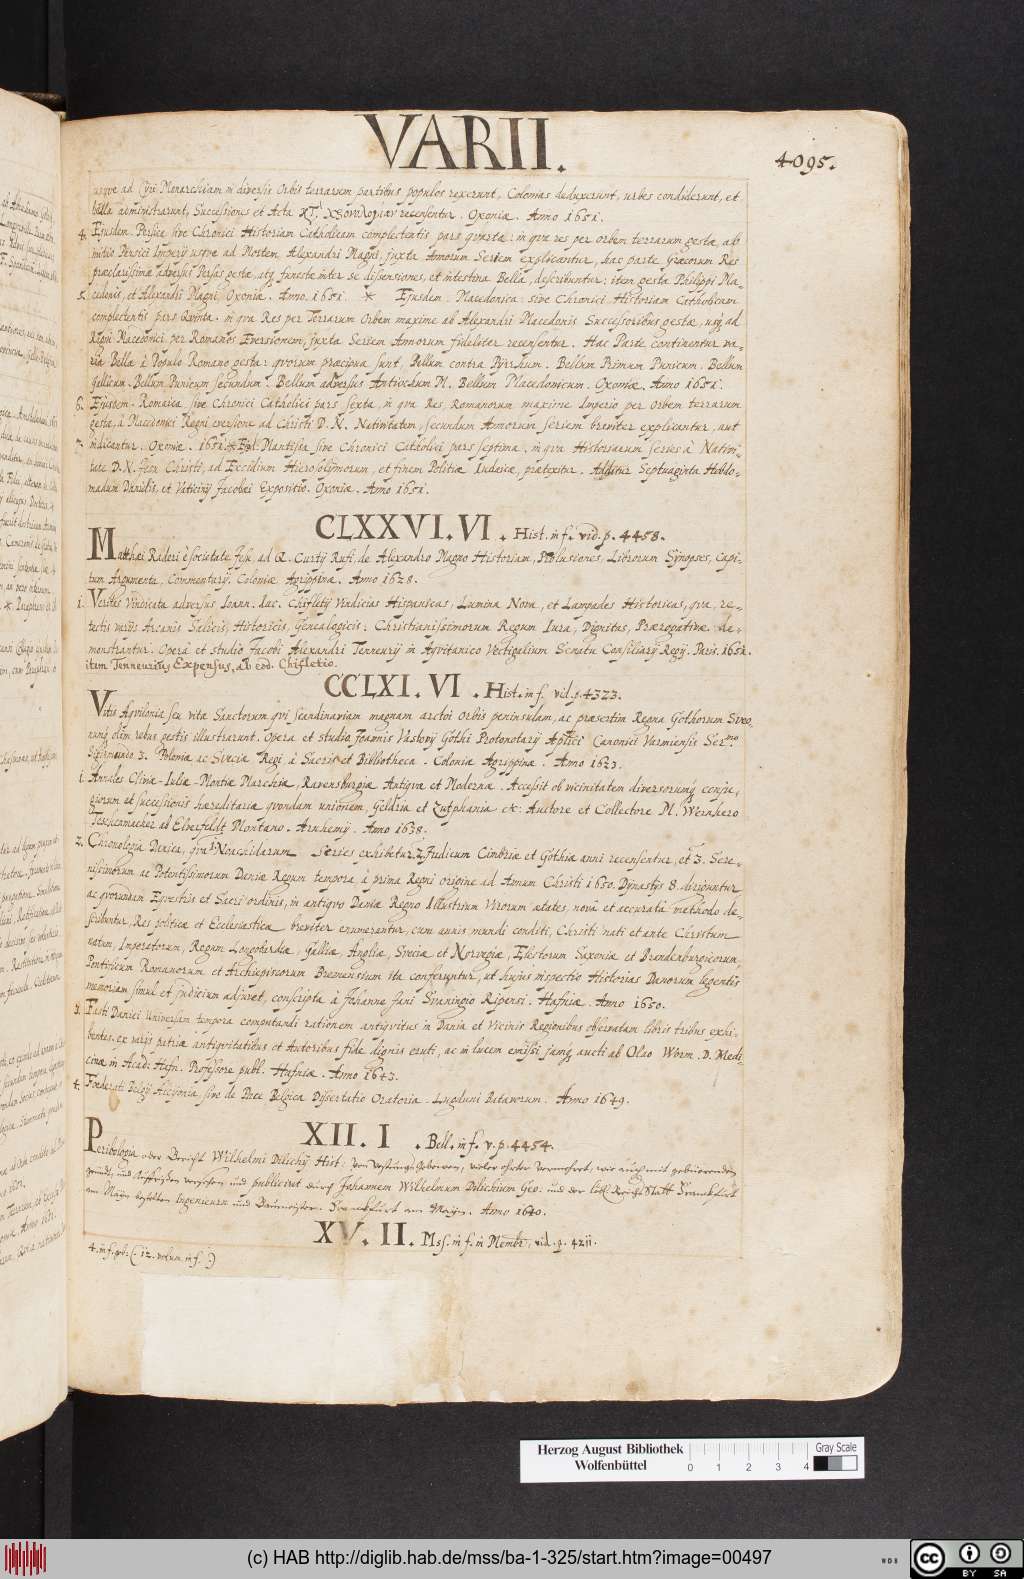 VARII.
4095.
usque ad Cyri Monarchiam in diversis Orbis terrarum partibus populos rexerunt, Colonias deduxerunt, urbes condiderunt, et
bella administrarunt, Successiones et Acta recensentur. Oxoniæ. Anno 1651.
4. Ejusdem. Persica sive Chronici Historiam Catholicam complectentis pars quarta: in qva res per orbem terrarum gestæ, ab
initio Persici Imperij usqve ad Mortem Alexandri Magni, juxta Annorum Seriem explicantur, hac parte Græcorum Res
præclarissimæ adversus Persas gestæ, atq funestæ inter se dissensiones, et intestina Bella, describuntur: item gesta Philippi Ma-
5. cedonis, et Alexandri Magni, Oxoniæ. Anno. 1651. * Ejusdem. Macedonica: sive Chronici Historiam Catholicam
complectentis pars Quinta. in qva Res per Terrarum Orbem maxime ab Alexandri Macedonis Successoribus gestæ, usq ad
Regni Macedonici per Romanos Eversionem, juxta Seriem Annorum fideliter recensentur. Hac Parte continentur va-
ria Bella à Populo Romano gesta: qvorum præcipua sunt, Bellum contra Pyrrhum. Bellum Primum Punicum. Bellum
Gallicum. Bellum Punicum secundum. Bellum adversus Antiochum M. Bellum Macedonicum. Oxoniæ. Anno 1651.
6. Ejusdem. Romaica, sive Chronici Catholici pars sexta, in qva Res, Romanorum maxime Imperio per Orbem terrarum
gestæ, à Macedonici Regni eversione ad Christi D. N. Nativitatem, secundum Annorum seriem breviter explicantur, aut
7. indicantur. Oxoniæ. 1651. * Ejusd. Mantissa sive Chronici Catholici pars septima. in qva Historiarum series à Nativi-
tate D. N. Jesu Christi, ad Excidium Hierosolymorum, et finem Politiæ Iudaicæ, prætexitur. Additur Septuaginta Hebdo-
madum Danielis, et Vaticinij Jacobæi Expositio. Oxoniæ. Anno 1651.
CLXXVI. VI. Hist. in f. vid. p. 4458.
Matthæi Raderi è Societate Jesu, ad Q. Curtij Rufi, de Alexandro Magno Historiam, Prolusiones, Librorum Synopses, Capi-
tum Argumenta, Commentarij. Coloniæ Agrippinæ. Anno 1628.
1. Veritas Vindicata adversus Ioann. Iac. Chifletij Vindicias Hispanicas, Lumina Nova, et Lampades Historicas, qva, re-
tectis varijs Arcanis Salicis, Historicis, Genealogicis: Christianissimorum Regum Iura, Dignitas, Prærogativæ de-
monstrantur. Opera et studio Jacobi Alexandri Tenneurij in Aqvitanico Vectigalium Senatu Consiliarij Regij. Paris. 1651.
item Tenneurius Expensus, ab eod. Chifletio.
CCLXI. VI. Hist. in f. vid. p. 4323.
Vitis Aqvilonia seu vita Sanctorum qvi Scandinaviam magnam arctoi Orbis peninsulam, ac præsertim Regna Gothorum Sveo-
rumq olim rebus gestis illustrarunt. Opera et studio Joannis Vastovij Gothi Protonotarij Aplici Canonici Varmiensis Ser.mo
Sigismundo 3. Poloniæ ac Sveciæ Regi, à Sacris et Bibliotheca. Coloniæ Agrippinæ. Anno 1623.
1. Annales Cliviæ-Iuliæ-Montiæ Marchiæ, Ravensburgiæ Antiqvæ et Modernæ. Accessit ob vicinitatem diversorumq conju-
giorum et successionis hæreditariæ qvondam unionem, Geldriæ et Zutphaniæ &c: Auctore et Collectore M. Wernhero
Teschenmacher ab Elverfeldt Montano. Arnhemij. Anno 1638.
2. Chronologia Danica, qva 1. Noachidarum series exhibetur, 2. Judicum Cimbriæ et Gothiæ anni recensentur, et 3. Sere-
nissimorum ac Potentissimorum Daniæ Regum tempora, à prima Regni origine ad Annum Christi 1650. Dynastijs 8. dirigantur
ac qvorundam Eqvestris et Sacri ordinis, in antiqvo Daniæ Regno Illustrium Virorum ætates, novâ et accuratâ methodo de-
scribuntur, Res politicæ et Ecclesiasticæ breviter enumerantur, cum annis mundi conditi, Christi nati et ante Christum
natum, Imperatorum, Regum Longobardiæ, Galliæ, Angliæ, Sveciæ et Norvegiæ, Electorum Saxoniæ et Brandenburgicorum
Pontificum Romanorum et Archiepiscorum Bremensium ita conferuntur, ut hujus inspectio Historias Danorum legentis
memoriam simul et judicium adjuvet, conscripta à Johanne Jani Svaningio Ripensi. Hafniæ. Anno 1650.
3. Fasti Danici Universam tempora computandi rationem antiqvitus in Dania et Vicinis Regionibus observatam libris tribus exhi-
bentes. ex varijs patriæ antiqvitatibus et Autoribus fide dignis eruti, ac in lucem emissi jamq aucti ab Olao Worm. D. Medi-
cinæ in Acad. Hafn. Professore publ. Hafniæ. Anno 1643.
4. Fœderati Belgij Alcyonia, sive de Pace Belgica Dissertatio Oratoria. Lugduni Batavorum. Anno 1649.
XII. I. Bell. in f. v. p. 4454.
Peribologia oder Bericht Wilhelmi Dilichij Hist: Von Vestungs Gebewen, vieler ohrter vermehrt, wie auch mit gebührenden
grundt und Auffrissen versehen und publiciret durch Johannem Wilhelmum Dilichium Geo: und der löbl. Reichs Statt Franckfurt
am Mayn bestelten Ingenieurn und Baumeister. Franckfurt am Mayn. Anno 1640.
XV. II. Mss. in f. in Membr. vid. p. 4211.
4. in f. geb: (. 12. volum. in f. .)
Herzog August Bibliothek
Wolfenbüttel
Gray Scale
0 1 2 3 4
(c) HAB http://diglib.hab.de/mss/ba-1-325/start.htm?image=00497
cc BY SA